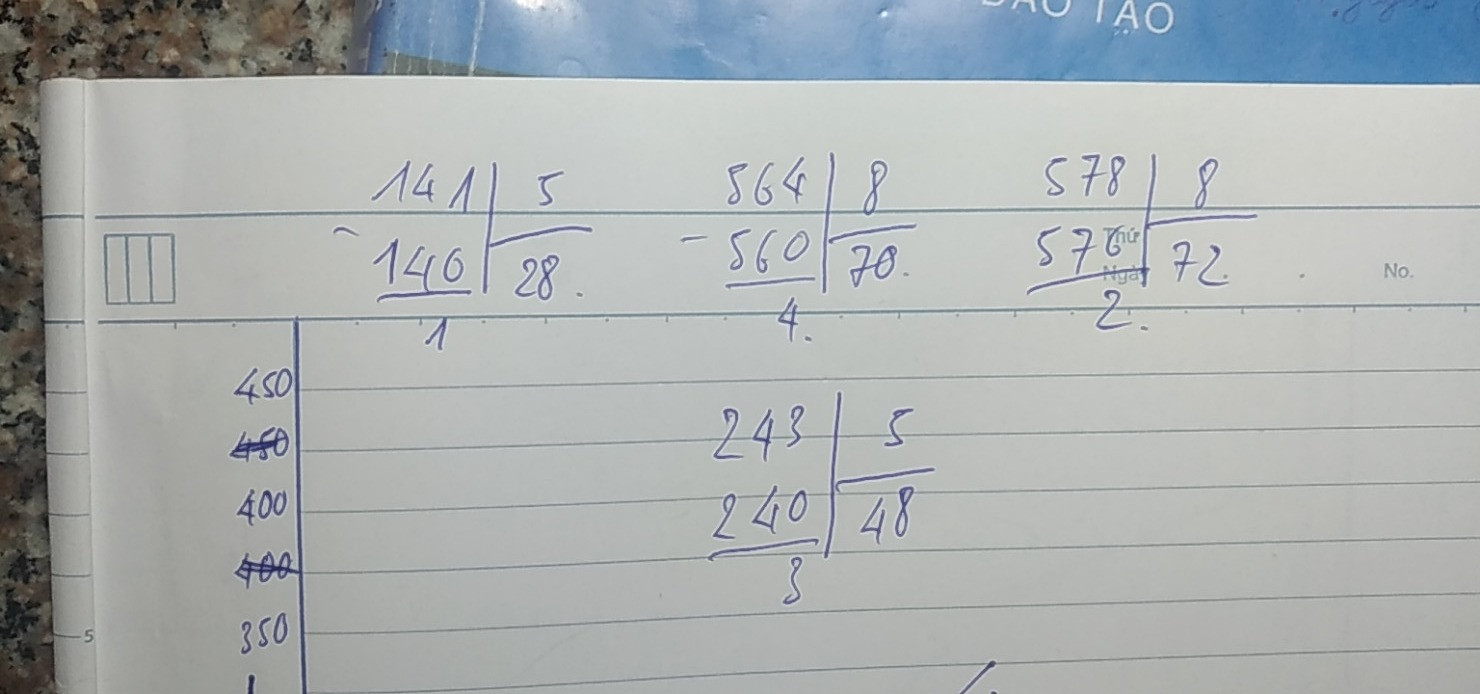 ĐÀO TẠO
141 5 564 8 578 8
- 140 28. - 560 70. 576 72.
Thứ
Ngày
No.
1 4. 2.
450
450 243 5
400 240 48
400 3
350
5